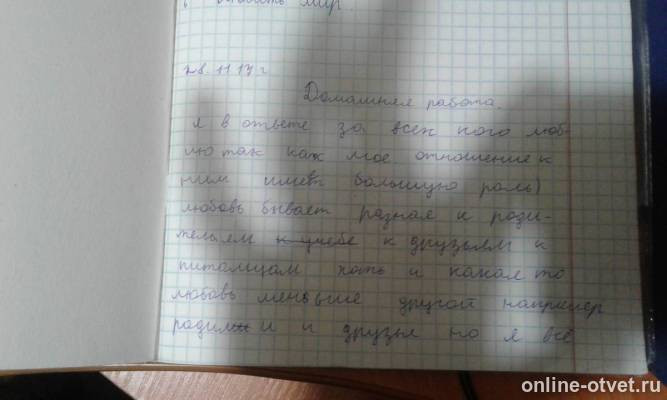 мир.
11 17 г
Домашняя работа.
я в ответе за всех кого люб
лю так как мое отношение к
ним имеет большую роль)
любовь бывает разная к роди-
тельям к учебе к друзьям к
питомцам хоть и какая то
любовь меньше другой например
родили и друзья но я всё
online-otvet.ru